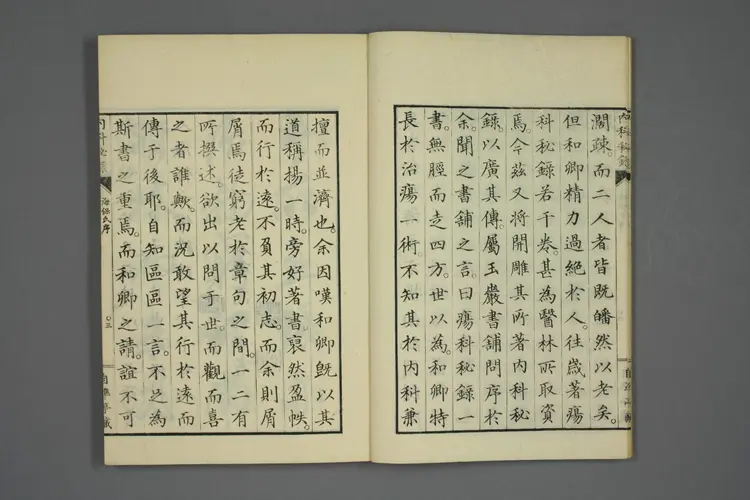 濶疎。而二人者皆既皤然以老矣。
但和卿精力過絶於人。往歳著瘍
科秘録若干卷。甚為醫林所取資
焉。今茲又將開雕其所著内科秘
録。以廣其傳。屬玉巖書舖問序於
余。聞之書舖之言曰瘍科秘録一
書。無脛而走四方。世以為。和卿特
長於治瘍一術。不知其於内科兼
擅而並濟也。余因嘆和卿既以其
道稱揚一時。旁好著書裒然盈帙。
而行於遠。不負其初志。而余則屑
屑焉徒窮老於章句之間。一二有
所撰述。欲出以問于世。而觀而喜
之者誰歟。而況敢望其行於遠而
傳于後耶。自知區區一言。不足為
斯書之重焉。而和卿之請。誼不可
内科秘録
序
〇三